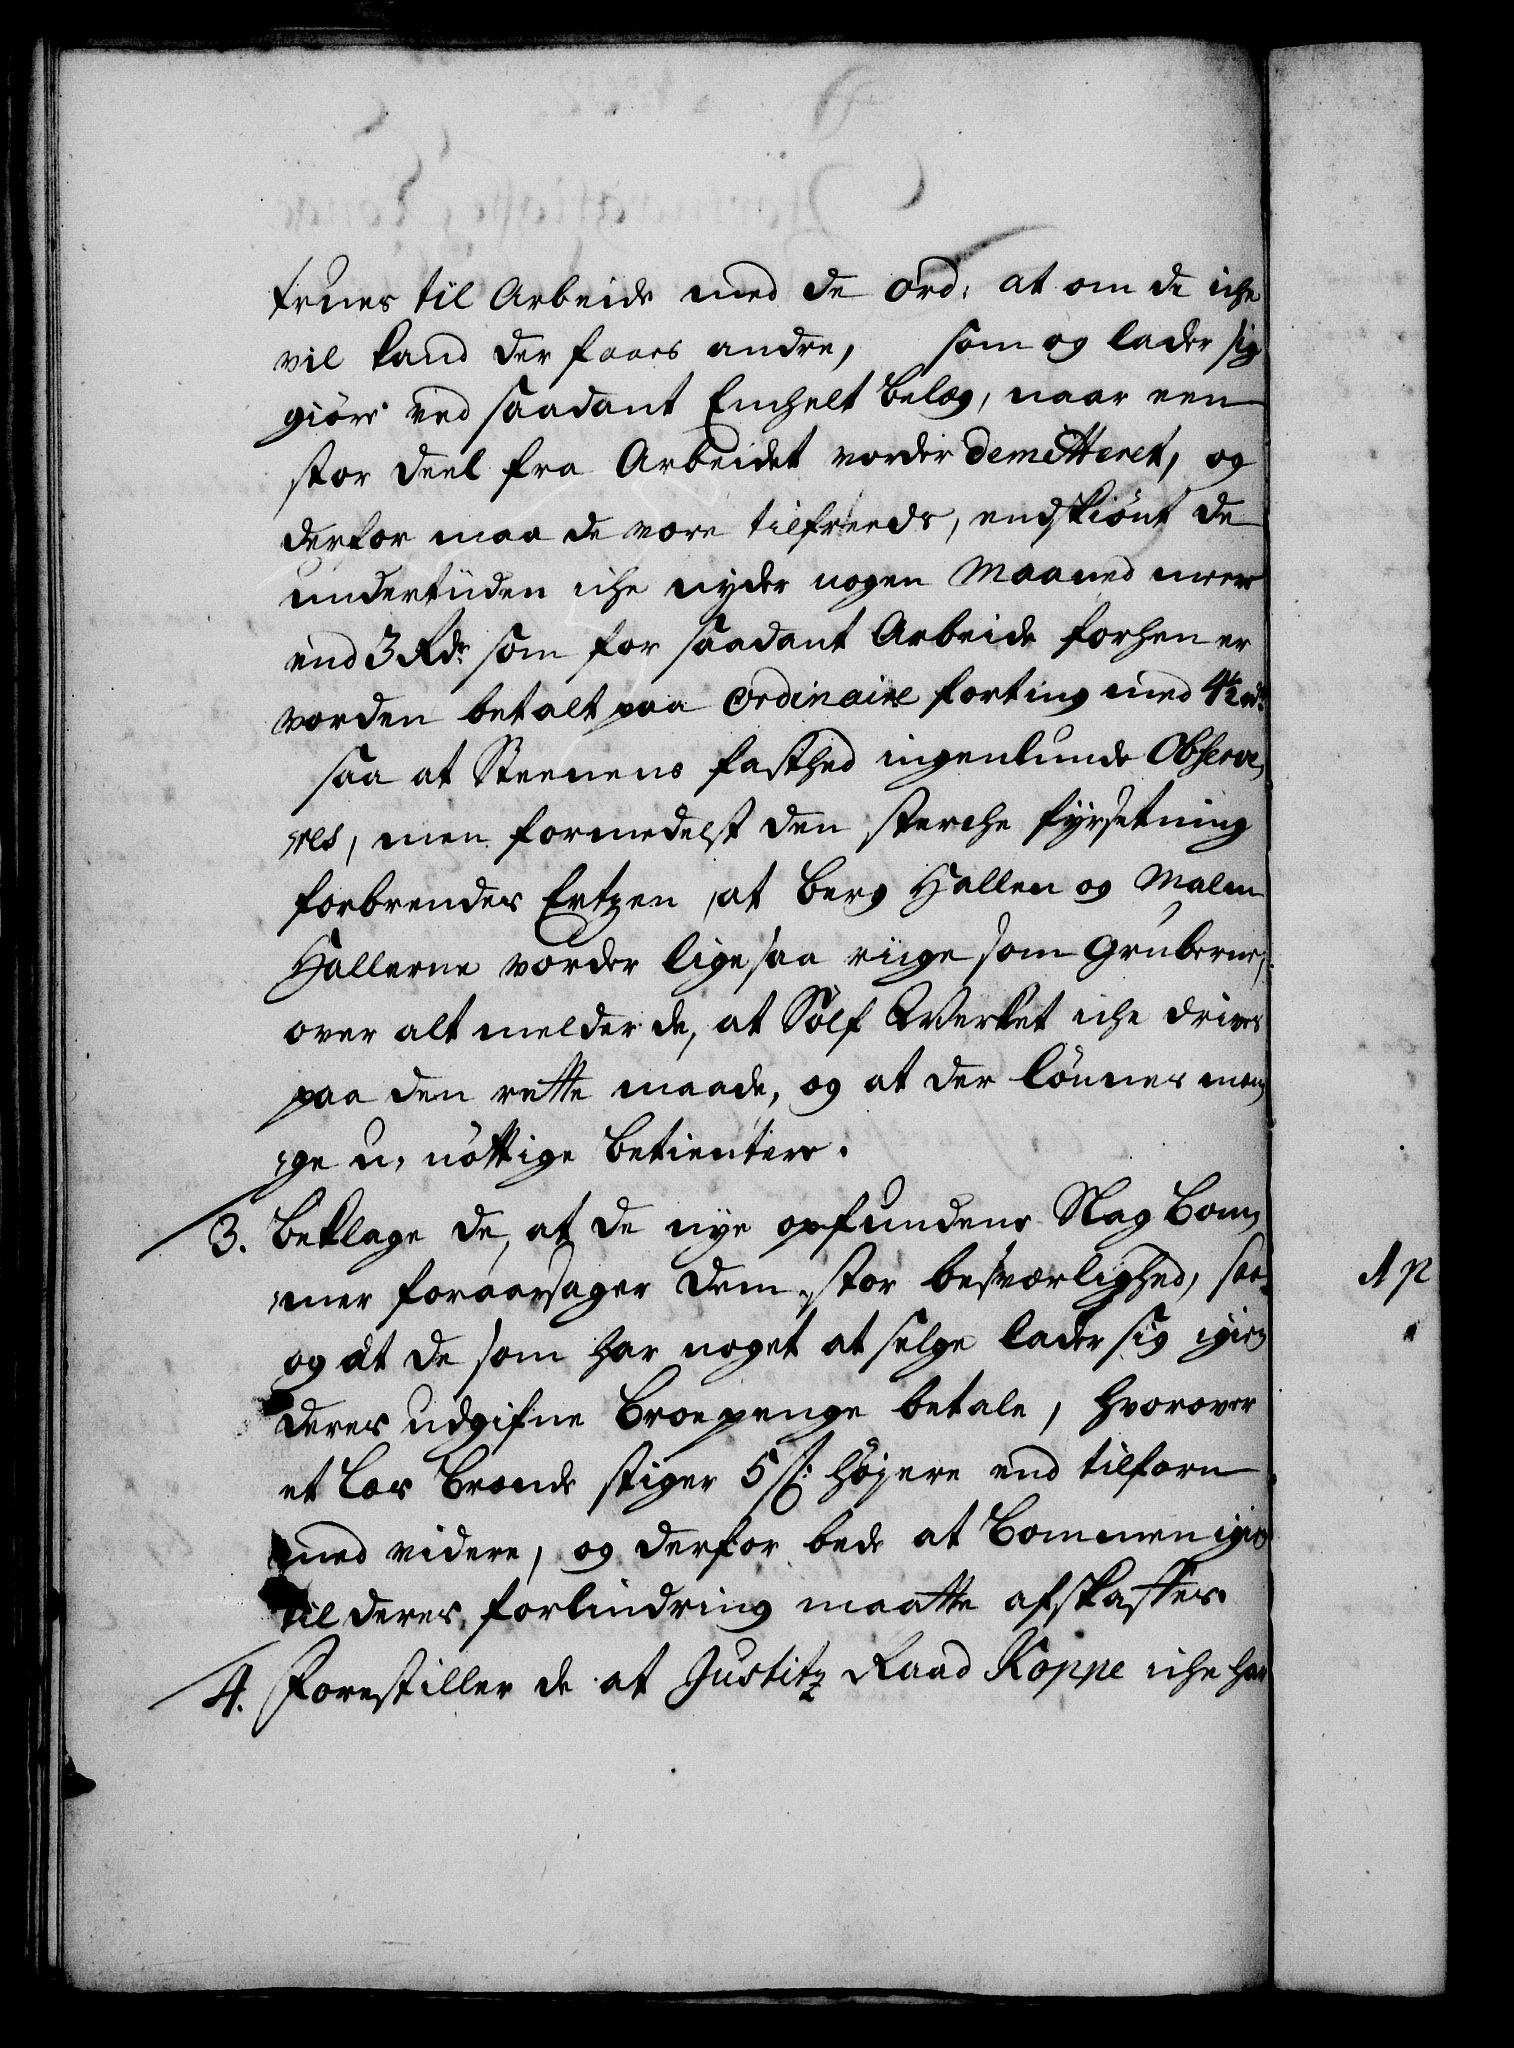 truer til Arbeide med de ord: at om de iche
vil kand der faaes andre, som og lader sig
giöre ved saadant Enchelt belæg, naar een
stor deel fra Arbeidet vorder demitteret, og
derfor maa de være tilfreeds, endskiönt de
undertiiden iche nyder nogen Maaned meere
end 3 Rdr. som for saadant Arbeide forhen er
vorden betalt paa ordinaire forting med 4½ rd.
saa at Steenens fasthed ingenlunde Observe,
,res, men formedelst den sterche fyrsetning
forbrender Ertzen, at berg Hallen og Malm
Hallerne vorder lige saa riige som Gruberne,
over alt melder de, at Sölf Werket iche drives
paa den rette maade, og at der lönnes man,
,ge u, nöttige betientere.
3. beklage de, at de nye opfundene Slag bom,
,mer foraarsager dem stor besværlighed, saa
og at de som har noget at selge lader sig igien
deres udgifne broepenge betale, hvorover
et læs brænde stiger 5 s: höyere end tilforn
med videre, og derfor bede at bommen igien
til deres forlindring maatte afskaffes.
4. Forestiller de at Justitz Raad Koppe iche har